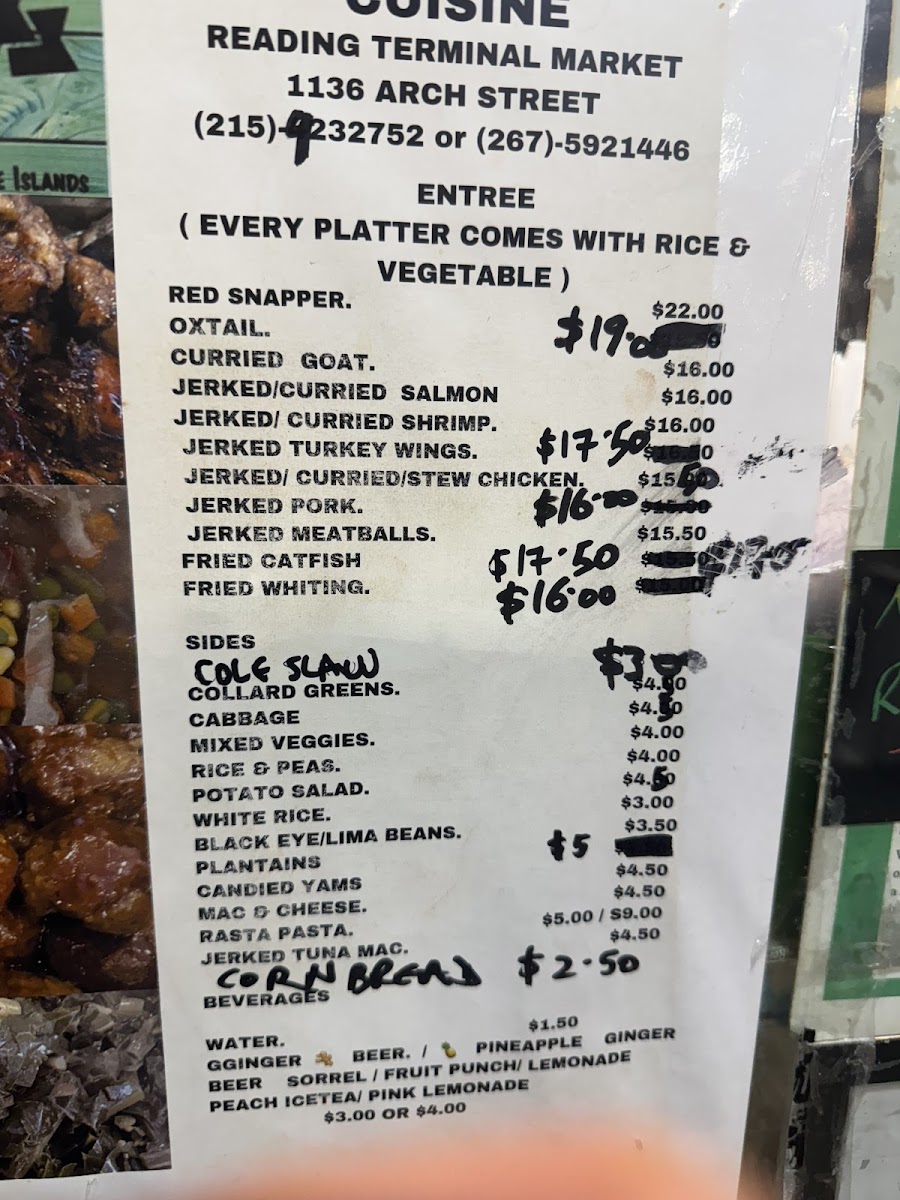 CUISINE
READING TERMINAL MARKET
1136 ARCH STREET
(215)-4232752 or (267)-5921446
E ISLANDS
ENTREE
( EVERY PLATTER COMES WITH RICE &
VEGETABLE )
RED SNAPPER. $22.00
OXTAIL. $19.00
CURRIED GOAT. $16.00
JERKED/CURRIED SALMON $16.00
JERKED/ CURRIED SHRIMP. $16.00
JERKED TURKEY WINGS. $17.50
JERKED/ CURRIED/STEW CHICKEN. $15.50
JERKED PORK. $16.00
JERKED MEATBALLS. $15.50
FRIED CATFISH $17.50
FRIED WHITING. $16.00
SIDES
COLE SLAW $3.00
COLLARD GREENS. $4.00
CABBAGE $4.50
MIXED VEGGIES. $4.00
RICE & PEAS. $4.00
POTATO SALAD. $4.50
WHITE RICE. $3.00
BLACK EYE/LIMA BEANS. $3.50
PLANTAINS $5
CANDIED YAMS $4.50
MAC & CHEESE. $4.50
RASTA PASTA. $5.00 / $9.00
JERKED TUNA MAC. $4.50
CORN BREAD $2.50
BEVERAGES
WATER. $1.50
GGINGER BEER. / PINEAPPLE GINGER
BEER SORREL / FRUIT PUNCH/ LEMONADE
PEACH ICETEA/ PINK LEMONADE
$3.00 OR $4.00